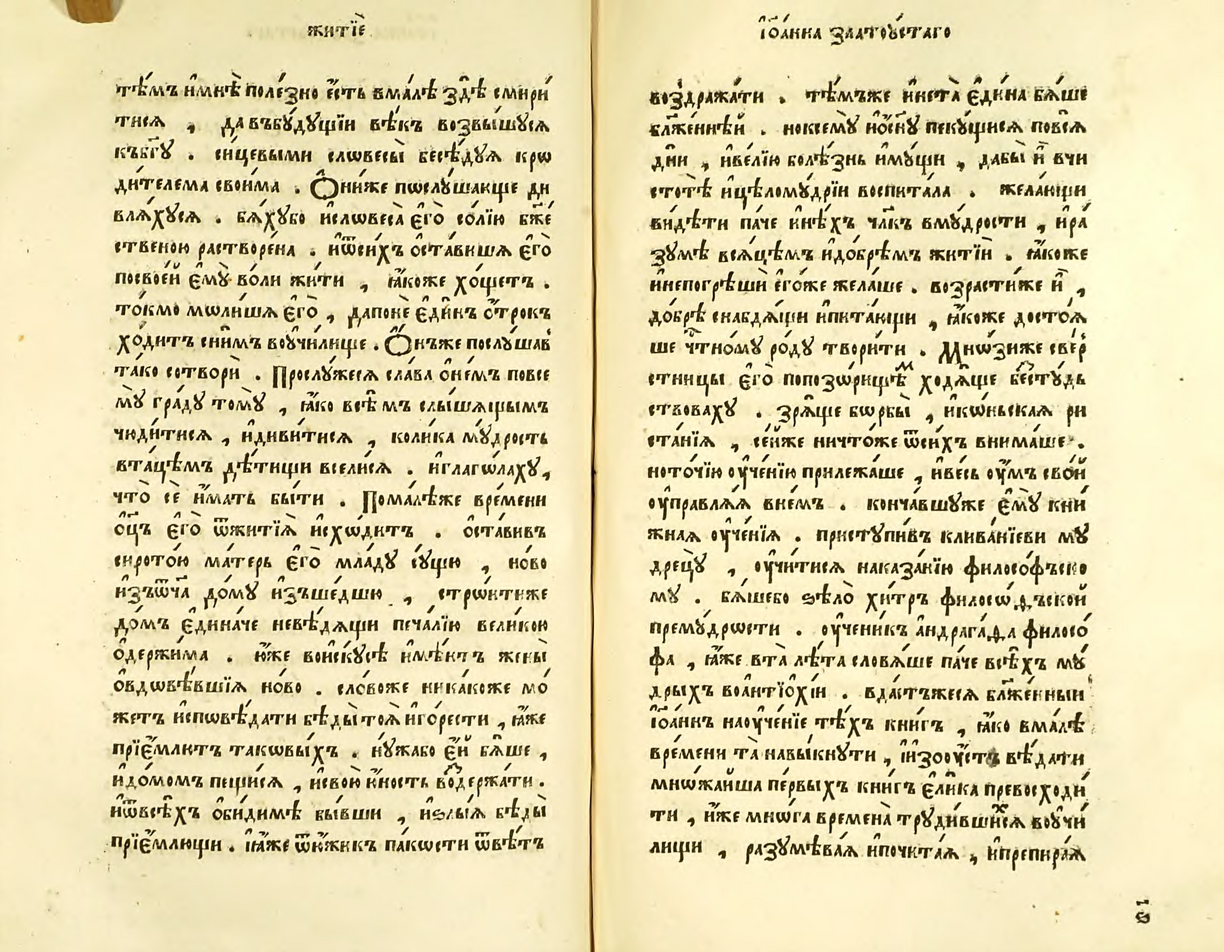 житїѐ
тѣ́мъ и҆мнѣ̀ поле́зно є҆́сть вма́лѣ здѣ̀ смири́
тисѧ , да въбꙋ́дꙋщїи вѣ́къ возвы́шꙋсѧ
къбг҃ꙋ . сицевы́ми слѡвесы̀ бесѣ́дꙋѧ крѡ
ди́телема свои́ма . Ѻ҆ни́же пѡслꙋ́шающе ди
влѧ́хꙋсѧ . бѧ́хꙋбо и҆слѡвеса̀ є҆гѡ̀ со́лїю бж҃е
ственою растворе́на . и҆ѿси́хъ ѡ҆ста́вишѧ є҆го̀
посвое́й є҆мꙋ̀ во́ли жи́ти , ꙗ҆́коже хо́щетъ .
то́кмо мѡли́шѧ є҆го̀ , дапонѐ є҆ди́нъ ѻ҆́трокъ
хо́дитъ сни́мъ воучи́лище . Ѻ҆́нъже послꙋ́шав
та́ко сотворѝ . Прослꙋ́жесѧ сла́ва ѻ҆не́мъ повсе
мꙋ̀ гра́дꙋ томꙋ̀ , ꙗ҆́ко всѣ́мъ слы́шѧщымъ
чюди́тисѧ , и҆диви́тисѧ , коли́ка мꙋ́дрость
вта́цѣмъ дѣ́тищи всели́сѧ . и҆глаго́лахꙋ,
что̀ сѐ и҆́мать бы́ти . Пома́лѣже вре́мени
ѻ҆ц҃ъ є҆гѡ̀ ѿжитїѧ̀ и҆схо́дитъ . ѡ҆ста́вивъ
сирото́ю ма́терь є҆го̀ мла́дꙋ сꙋ́щю , но́во
и҆зъѿч҃а до́мꙋ и҆зъше́дшю , стрѡ́итиже
до́мъ є҆дина́че невѣ́дѧщи печа́лїю вели́кою
ѡ҆держи́ма . ю҆́же воискꙋ́сѣ и҆мѣ́ютъ жены̀
ѻ҆вдовѣ́вшїѧ но́во . сло́воже ника́коже мо́
жетъ и҆спѡвѣ́дати бѣ́ды тоѧ̀ и҆го́рести , ꙗ҆́же
прїє́млютъ такѡвы́хъ . нꙋ́жабо є҆́й бѧ́ше ,
и҆до́момъ пещи́сѧ , и҆свою̀ ю҆́ность водержа́ти .
и҆ѿвсѣ́хъ ѻ҆би́димѣ бы́вши , и҆ѕлы́ѧ бѣ́ды
прїє́млющи . ꙗ҆́же ѿю҆́жикъ па́кости ѿвѣ́тъ
і҆ѻа́нна златоꙋ́стаго
воздража́ти . тѣ́мъже и҆нста̀ є҆ди́на бѧ́ше
бл҃же́ннѣй . ноксемꙋ̀ и҆ѻ҆сн҃ꙋ пекꙋ́щисѧ повсѧ̀
дн҃и , и҆ве́лїю болѣ́знь и҆мꙋ́щи , дабы̀ и҆̀ вчи
стотѣ̀ и҆цѣломꙋ́дрїи воспита́ла . жела́ющи
ви́дѣти па́че и҆нѣ́хъ чл҃къ вмꙋ́дрости , и҆ра́
зꙋмѣ всѧ́цѣмъ и҆до́брѣмъ житїѝ . ꙗ҆́коже
и҆непогрѣшѝ є҆го́же жела́ше . возрасти́же и҆̀ ,
до́брѣ снабдѧ́щи и҆пита́ющи , ꙗ҆́коже досто́ѧ
ше чт҃номꙋ ро́дꙋ твори́ти . Мно́ѕиже све́р
стницы є҆гѡ̀ попозѡ́рищѣм ходѧ́ще бестꙋ́дь
ствовахꙋ . зрѧ́ще бѡрбы̀ , и҆ко́ньскаѧ ри
ста́нїѧ , се́йже ничто́же ѿси́хъ внима́ше .
ното́чїю оу҆че́нїю прилежа́ше , и҆ве́сь оу҆́мъ сво́й
оу҆правлѧ́ѧ вне́мъ . конча́вшꙋже є҆мꙋ̀ кни́
жнаѧ оу҆че́нїѧ . пристꙋпи́въ кливанїеви мꙋ
дрецꙋ̀ , оу҆чи́тисѧ наказа́нїю філосо́фьско
мꙋ . бѧ́шебо ѕѣло̀ хи́тръ філосо́фьской
премꙋ́дрѡсти . оу҆чени́къ андрага́фа філосо́
фа , ꙗ҆́же вта̀ лѣ́та словѧ́ше па́че всѣ́хъ мꙋ́
дрыхъ воантїохі́и . вда́стъжесѧ бл҃же́нныи
і҆ѻа́ннъ наоуче́нїе тѣ́хъ кни́гъ , ꙗ҆́ко вма́лѣ
вре́мени та̀ навы́кнꙋти , и҆изооу́стъ вѣ́дати
мнѡжа́йша пе́рвыхъ кни́гъ є҆ли́ка превосходи́
ти , и҆́же мнѡ́га времена̀ трꙋди́вшихсѧ воучи́
лищи , разꙋмѣва́ѧ и҆почита́ѧ , и҆препира́ѧ
ѕ҃і